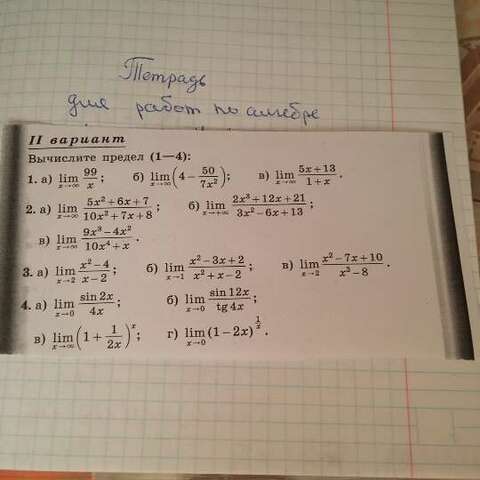 Тетрадь
для работ по алгебре
II вариант
Вычислите предел (1—4):
1. а) lim x→∞ 99/x; б) lim x→∞ (4 − 50/7x²); в) lim x→∞ 5x+13/1+x.
2. а) lim x→∞ 5x²+6x+7/10x²+7x+8; б) lim x→+∞ 2x³+12x+21/3x²−6x+13;
в) lim x→∞ 9x³−4x²/10x⁴+x.
3. а) lim x→2 x²−4/x−2; б) lim x→1 x²−3x+2/x²+x−2; в) lim x→2 x²−7x+10/x³−8.
4. а) lim x→0 sin 2x/4x; б) lim x→0 sin 12x/tg 4x;
в) lim x→∞ (1 + 1/2x)ˣ; г) lim x→0 (1−2x)^1/x.